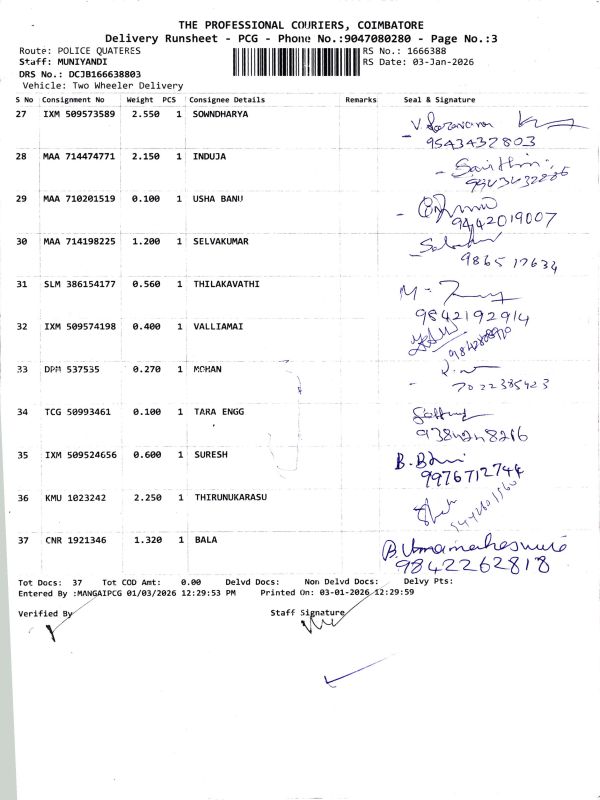 THE PROFESSIONAL COURIERS, COIMBATORE
Delivery Runsheet - PCG - Phone No.:9047080280 - Page No.:3
Route: POLICE QUATERES RS No.: 1666388
Staff: MUNIYANDI RS Date: 03-Jan-2026
DRS No.: DCJB166638803
Vehicle: Two Wheeler Delivery
S No Consignment No Weight PCS Consignee Details Remarks Seal & Signature
27 IXM 509573589 2.550 1 SOWNDHARYA
9543432803
28 MAA 714474771 2.150 1 INDUJA
29 MAA 710201519 0.100 1 USHA BANU
9442019007
30 MAA 714198225 1.200 1 SELVAKUMAR
31 SLM 386154177 0.560 1 THILAKAVATHI
9842192914
32 IXM 509574198 0.400 1 VALLIAMAI
33 DPM 537535 0.270 1 MOHAN
7022385423
34 TCG 50993461 0.100 1 TARA ENGG
35 IXM 509524656 0.600 1 SURESH
9976712744
36 KMU 1023242 2.250 1 THIRUNUKARASU
37 CNR 1921346 1.320 1 BALA
B. Umamaheswari
9842262818
Tot Docs: 37 Tot COD Amt: 0.00 Delvd Docs: Non Delvd Docs: Delvy Pts:
Entered By :MANGAIPCG 01/03/2026 12:29:53 PM Printed On: 03-01-2026 12:29:59
Verified By Staff Signature